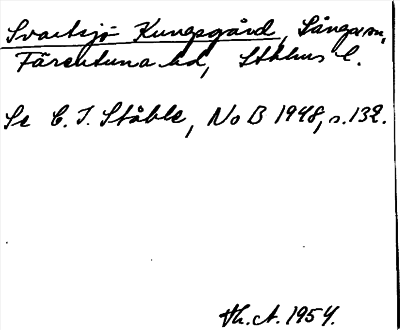 Svartsjö Kungsgård, Sånga sn,
Färentuna hd, Sthlms l.
Se C. I. Ståhle, NoB 1948, s. 132.
Th. A. 1954.